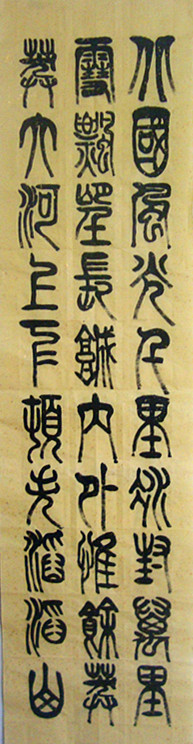 北國風光千里冰封萬里
雪飄望長城內外惟餘莽
莽大河上下頓失滔滔山